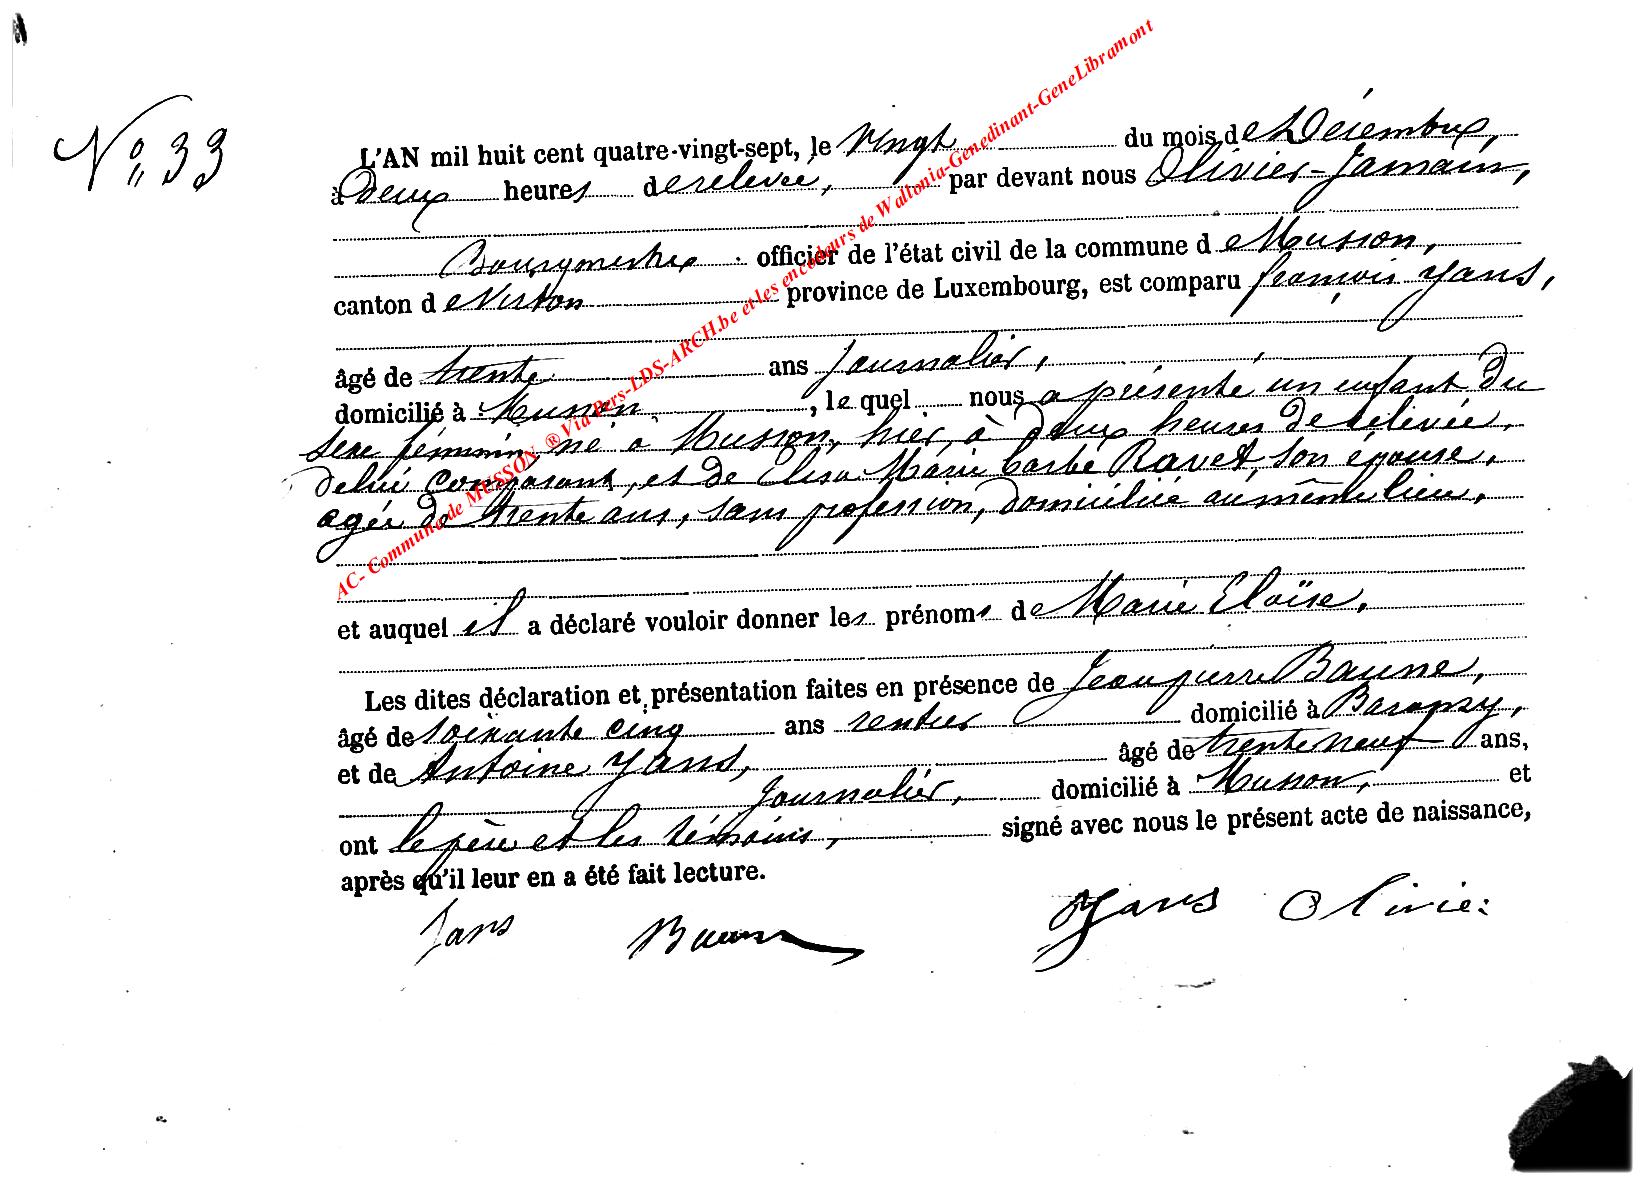 N° 33
L'AN mil huit cent quatre-vingt-sept, le vingt du mois de Décembre,
à Deux heures de relevée, par devant nous Olivier-Jamain,
Bourgmestre officier de l'état civil de la commune de Musson,
canton de Virton province de Luxembourg, est comparu françois Yans,
âgé de trente ans Journalier,
domicilié à Musson, le quel nous a présenté un enfant du
sexe féminin né à Musson, hier, à deux heures de relevée,
de lui comparant, et de Elisa Marie Barbe Ravet, son épouse,
agée de trente ans, sans profession, domiciliée au même lieu,
et auquel il a déclaré vouloir donner les prénoms de Marie Eloïse,
Les dites déclaration et présentation faites en présence de Jean pierre Baune,
âgé de soixante cinq ans rentier domicilié à Baranzy,
et de Antoine Yans, âgé de trente neuf ans,
Journalier, domicilié à Musson, et
ont le père et les témoins, signé avec nous le présent acte de naissance,
après qu'il leur en a été fait lecture.
Jans Baune Yans Olivier
AC- Commune de MUSSON ® Via Pers-LDS-ARCH.be et les encodeurs de Wallonia-Genedinant-GeneLibramont